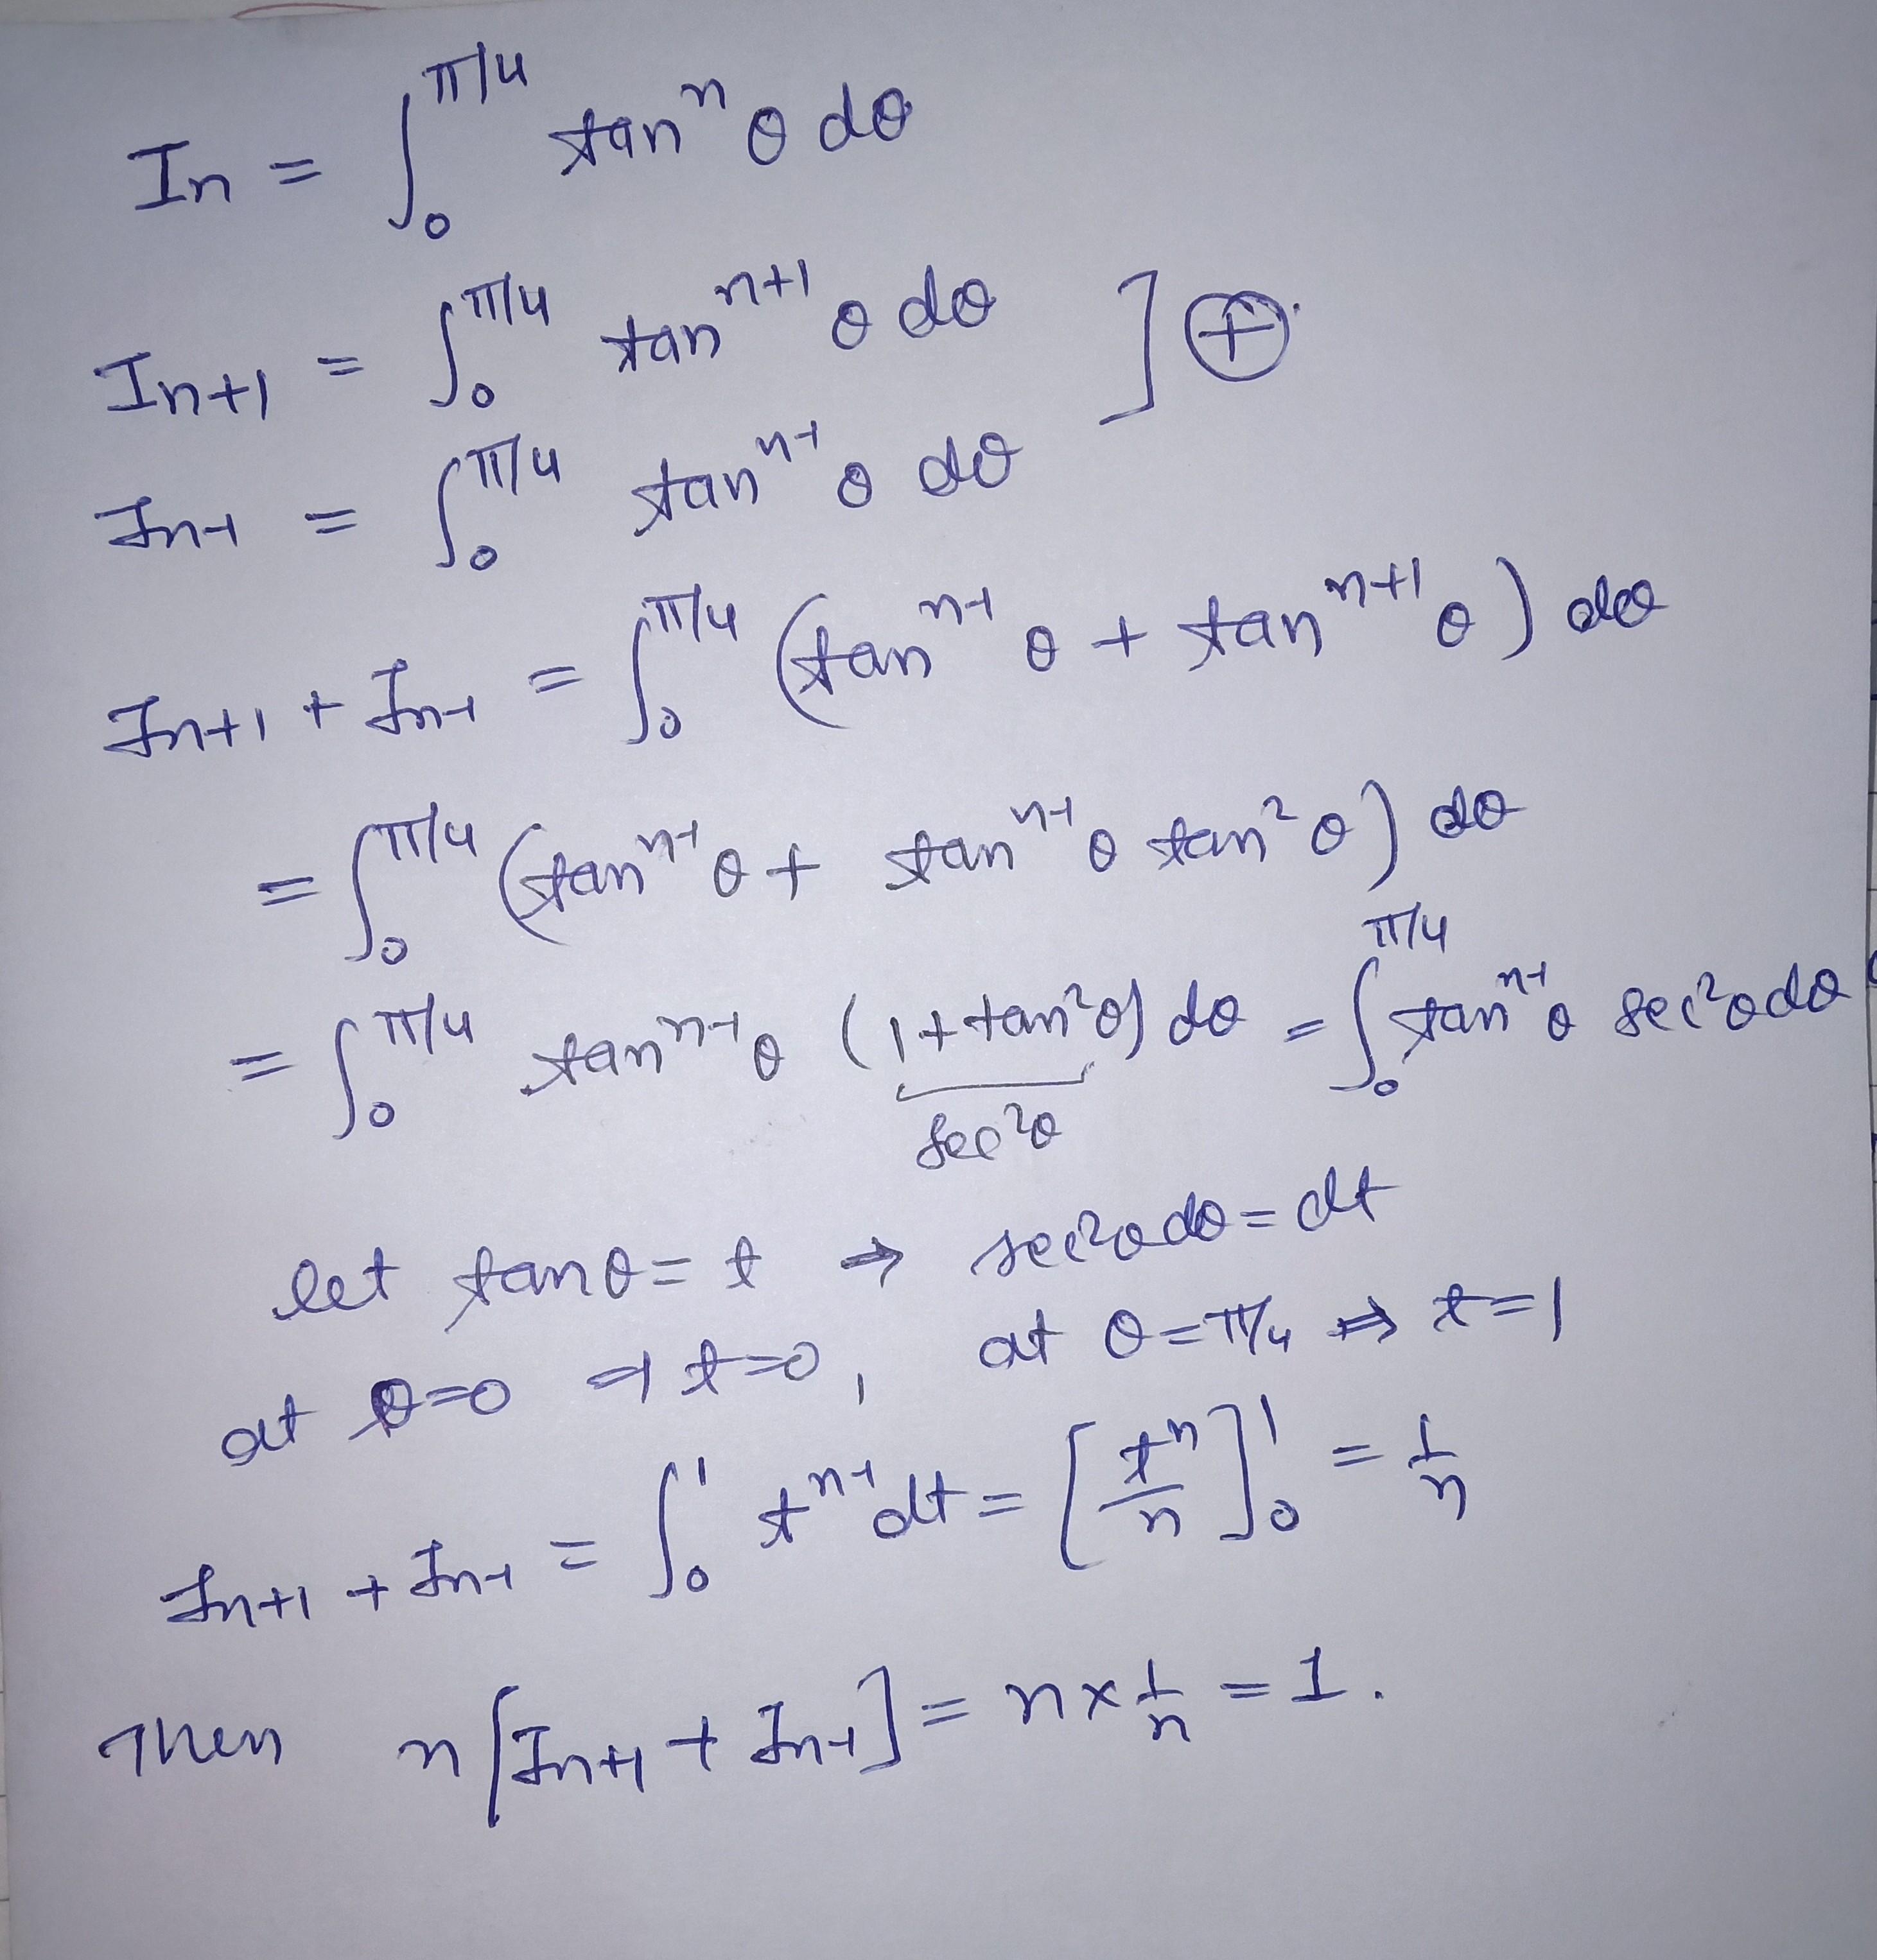 In = ∫₀^{π/4} tanⁿ θ dθ
In+1 = ∫₀^{π/4} tanⁿ⁺¹ θ dθ ] ⊕
In-1 = ∫₀^{π/4} tanⁿ⁻¹ θ dθ
In+1 + In-1 = ∫₀^{π/4} (tanⁿ⁻¹ θ + tanⁿ⁺¹ θ) dθ
= ∫₀^{π/4} (tanⁿ⁻¹ θ + tanⁿ⁻¹ θ tan² θ) dθ
= ∫₀^{π/4} tanⁿ⁻¹ θ (1 + tan² θ) dθ = ∫₀^{π/4} tanⁿ⁻¹ θ sec² θ dθ
sec² θ
let tan θ = t ⇒ sec² θ dθ = dt
at θ = 0 ⇒ t = 0, at θ = π/4 ⇒ t = 1
In+1 + In-1 = ∫₀¹ tⁿ⁻¹ dt = [tⁿ/n]₀¹ = 1/n
Then n [In+1 + In-1] = n × 1/n = 1.